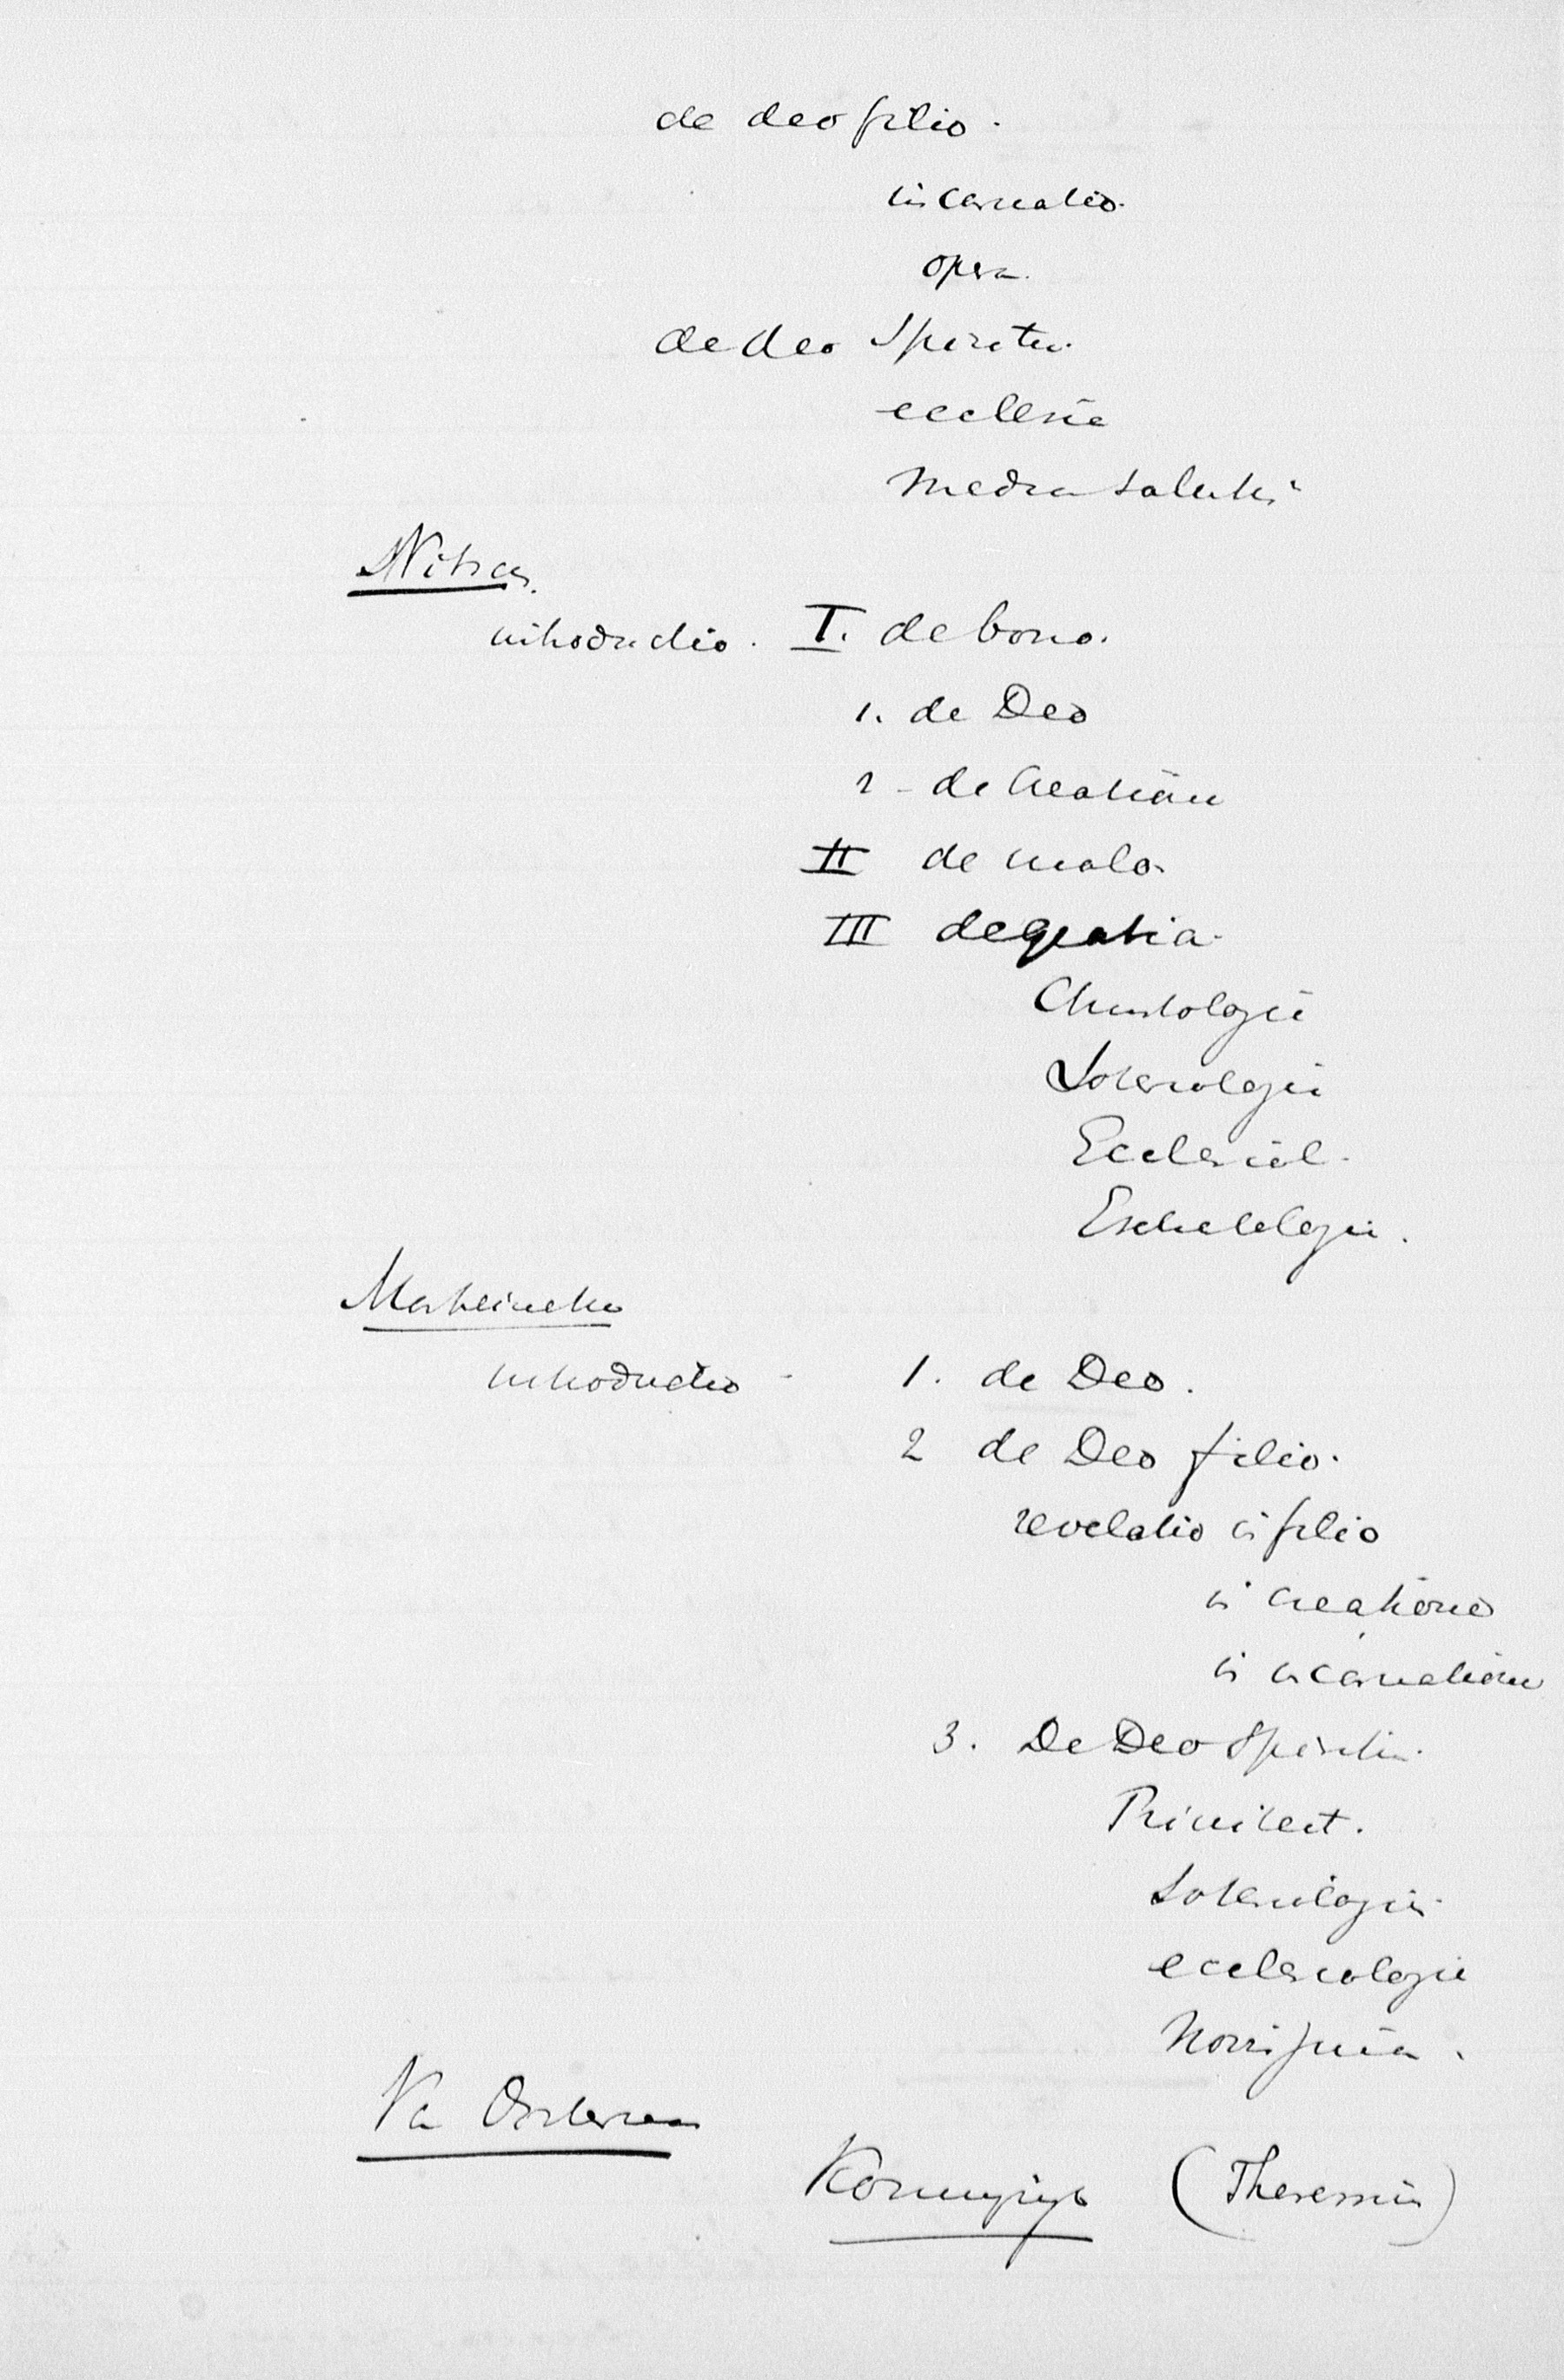 de deo filio.
incarnatio.
opera.
de deo Spiritu.
ecclesia
media salutis
Nitsch.
introductio. I. de bono.
1. de Deo
2 - de Creatione
II de malo.
III de gratia.
Christologie
Soteriologie
Ecclesiol.
Eschatologie.
Marheineke
introductio - 1. de Deo.
2 de Deo filio.
revelatio in filio
in creatione
in incarnatione
3. De Deo Spiritu.
Triniteit.
Soteriologie
ecclesiologie
Van Oosterzee
(Theremin)